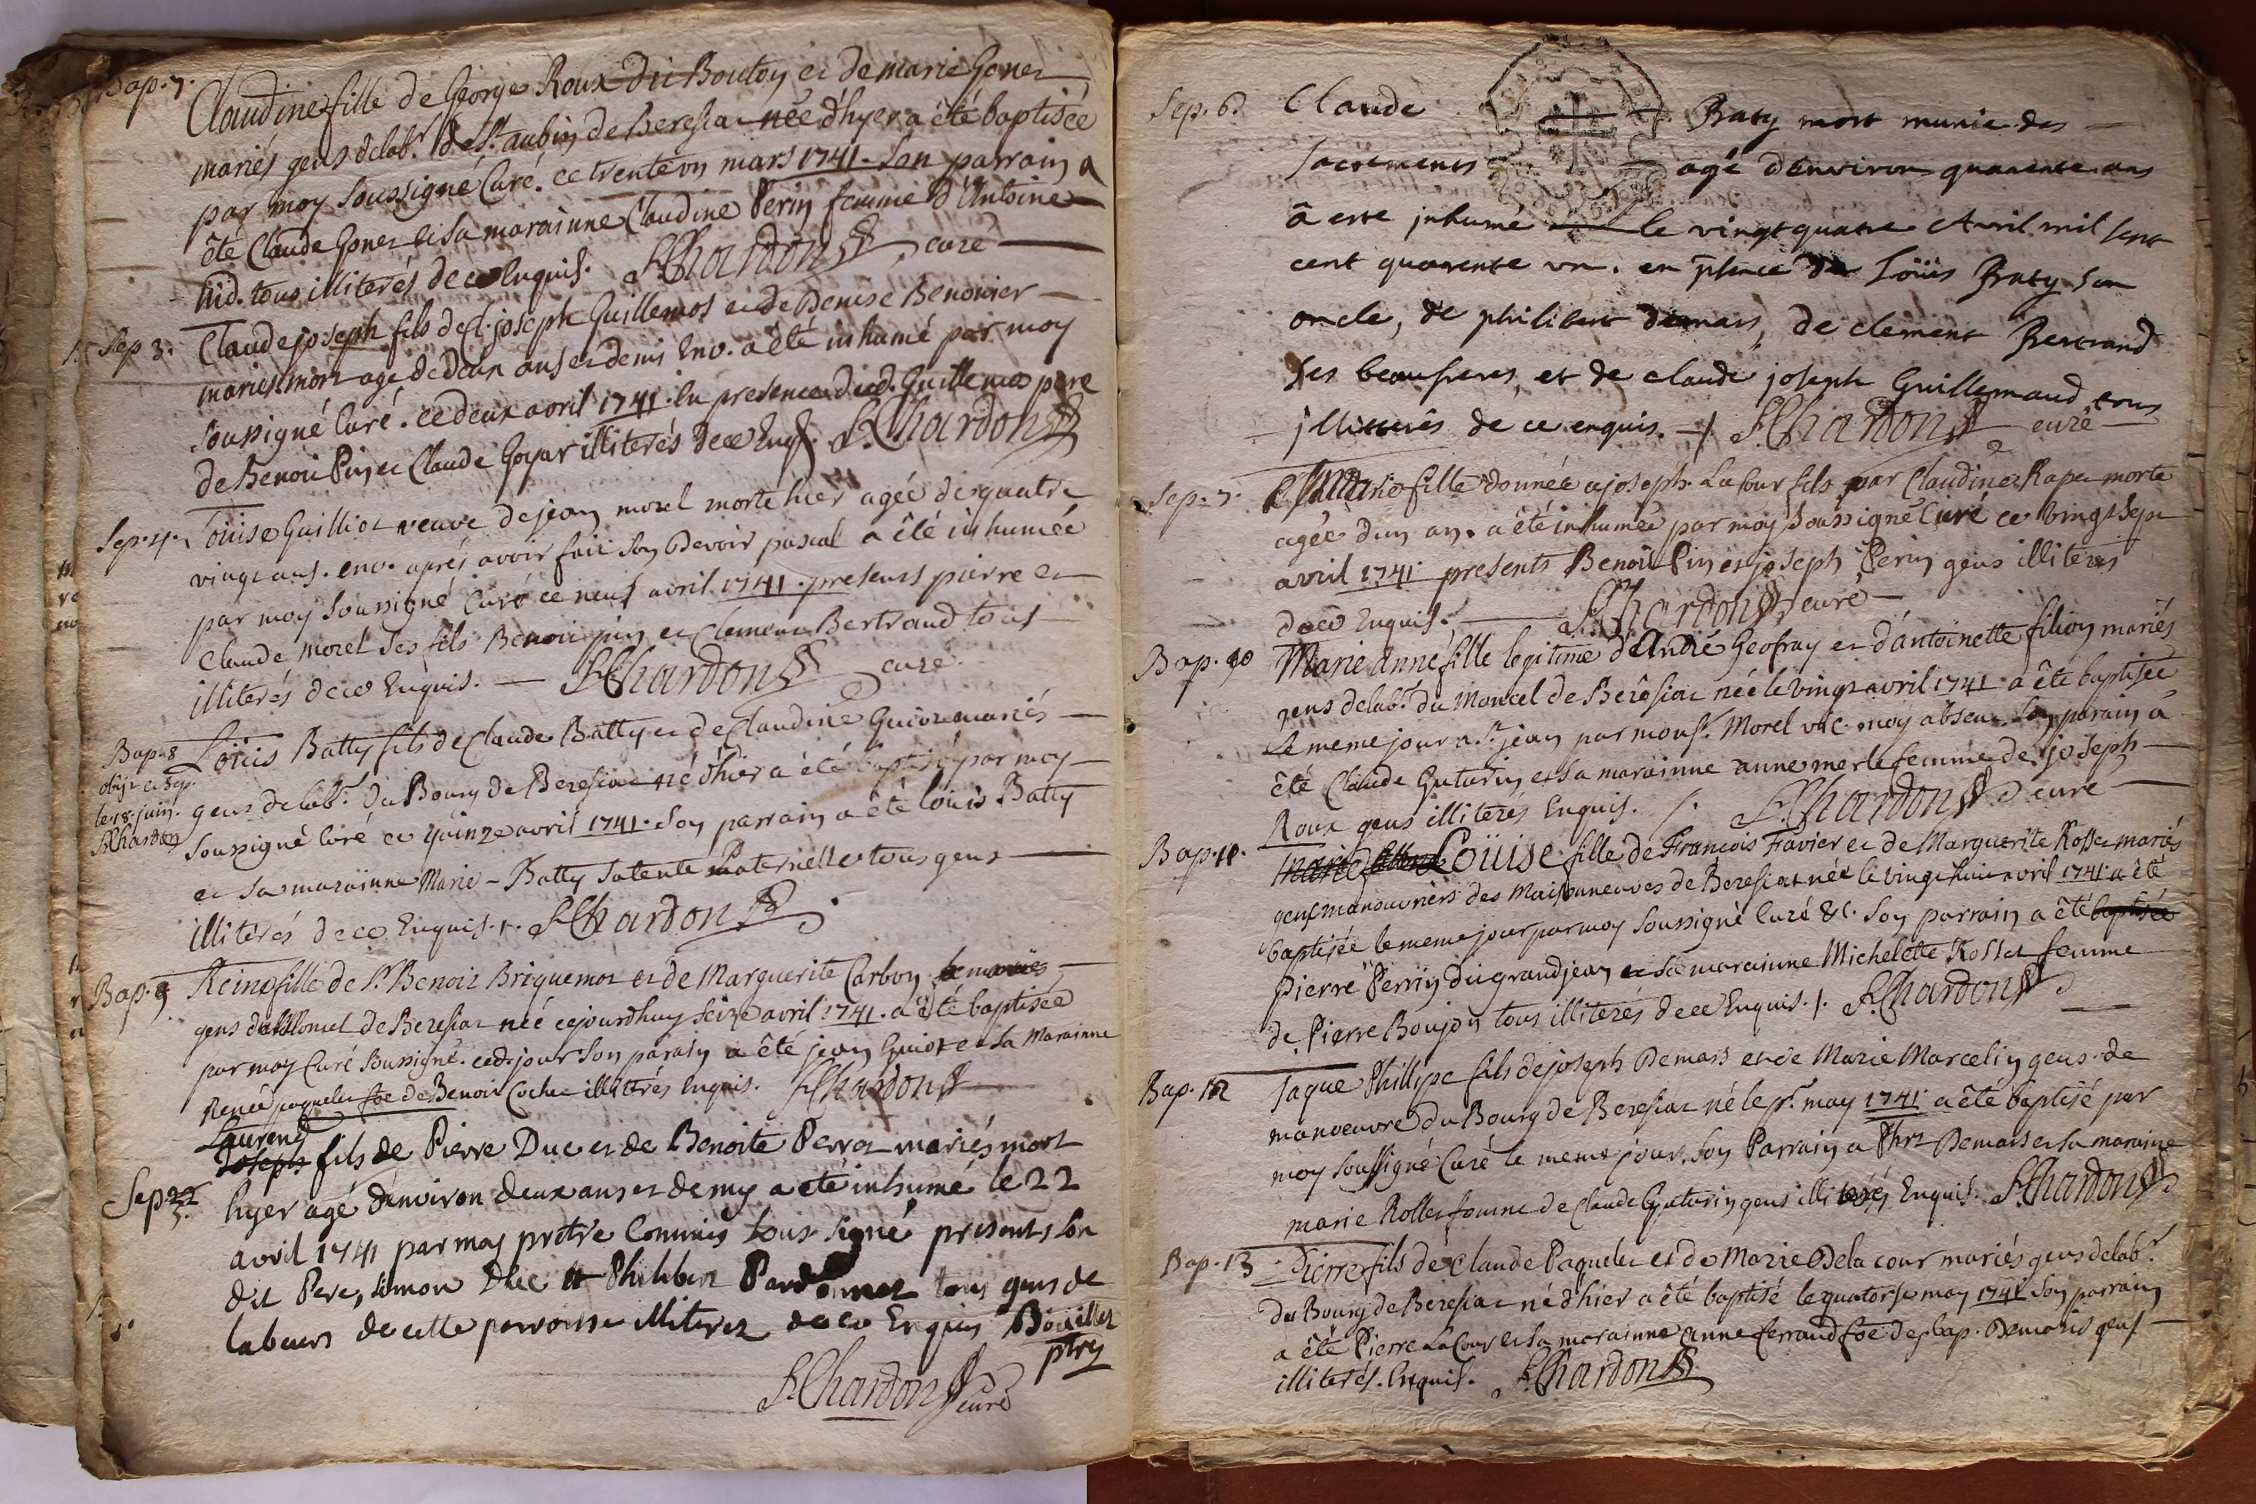 Bap. 7.
Claudine fille de George Roux du Boutoy et de marie Gonet
mariés gens de lab.r de St. aubin de Beresiat née d'hyer a été baptisée
par moy soussigné Curé. ce trente un mars 1741. Son parrain a
été Claude Gonet et sa marainne Claudine Perin femme d'Antoine
Nid. tous illiterés de ce Enquis. Chardon curé
Sep. 3.
Claude joseph fils de Cl. joseph Guillemos et de Denise Benonier
mariés mort agé de deux ans et demi Env. a été inhumé par moy
soussigné Curé. ce deux avril 1741. En presence dud. Guillemos pere
de Benoit Pin et Claude Goyar illiterés de ce Enq. Chardon
Sep. 4.
Loüise Guilliot veuve de jean morel morte hier agée de quatre
vingt ans. env. aprés avoir fait son Devoir pascal a été inhumée
par moy soussigné Curé ce neuf avril 1741. presents pierre et
Claude morel ses fils Benoit pin et Clement Bertrand tous
illiterés de ce Enquis. Chardon curé
Bap. 8
obijt et Sep.
le 18. juin.
Chardon
Loüis Batty fils de Claude Batty et de Claudine Guiot mariés
gens de lab.r du Bourg de Beresiat né d'hier a été baptisé par moy
soussigné Curé ce quinze avril 1741. Son parrain a été loüis Batty
et sa marainne Marie Batty sa tente Paternelle tous gens
illiterés de ce Enquis. Chardon
Bap. 9
Reine fille de Sr. Benoit Briquemot et de Marguerite Carbon mariés
gens du Moncel de Beresiat née cejourdhuy seize avril 1741. a été baptisée
par moy Curé soussigné. ced. jour Son parain a été jean Guiot et sa Marainne
Renée paquelet foe de Benoit Cochet illiterés Enquis. Chardon
Laurent
Joseph fils de Pierre Duc et de Benoite Perrot mariés mort
Sep. 22
5.
hyer agé d'environ deux ans et demy a été inhumé le 22
avril 1741 par moy prêtre Commis sous signé presents son
dit Pere, simon Duc et Philibert Pardonnet tous gens de
labeurs de cette parroisse illiterez de ce Enquis Boüillet
ptre
Chardon curé
Sep. 6.
Claude Baty mort munie des
sacrements agé d'environ quarente ans
â este inhumé le vingt quatre Avril mil sept
cent quarente un. en p̄sence de Loüis Baty son
oncle, de philibert demais, de clement Bertrand
ses beaufreres, et de claude joseph Guillemaud tous
jllitterés de ce enquis. Chardon curé
Sep. 7.
Marie fille donnée a joseph Lacour fils par Claudine Rape morte
agée d'un an. a été inhumée par moy soussigné Curé ce vingt sept
avril 1741. presents Benoit Pin et joseph Perin gens illiterés
de ce Enquis. Chardon curé
Bap. 10
Marie Anne fille legitime d'André Geofray et d'antoinette filion mariés
gens de lab.r du Moncel de Beresiat née le vingt avril 1741. a été baptisée
le meme jour a St. jean par mons.r Morel vic. moy absent. son parain a
été Claude Guturin et sa marainne anne merle femme de joseph
Roux gens illiterés Enquis. Chardon curé
Bap. 11.
Loüise fille de François Favier et de Marguerite Rosset mariés
gens manouvriers des Maisonneuves de Beresiat née le vingt huit avril 1741. a été
baptisée le meme jour par moy soussigné Curé &c. Son parrain a été baptisée
pierre Perrin du grandjean et sa marainne Michelette Rosset femme
de Pierre Boujon tous illiterés de ce Enquis. Chardon
Bap. 12
Jaque Phillipe fils de joseph Demais et de Marie Marcelin gens de
manoeuvre du Bourg de Beresiat né le pr. may 1741. a été baptisé par
moy soussigné Curé le meme jour. Son Parrain a Phrt Demais et sa maraine
marie Rollet femme de Claude Guturin gens illiterés Enquis. Chardon
Bap. 13
Pierre fils de Claude Paquelet et de Marie Dela cour mariés gens de lab.r
du Bourg de Beresiat né d'hier a été baptisé le quatorse may 1741. Son parrain
a été Pierre La Cour et sa marainne anne ferrand foe de jbap. Demaris gens
illiterés. Enquis. Chardon